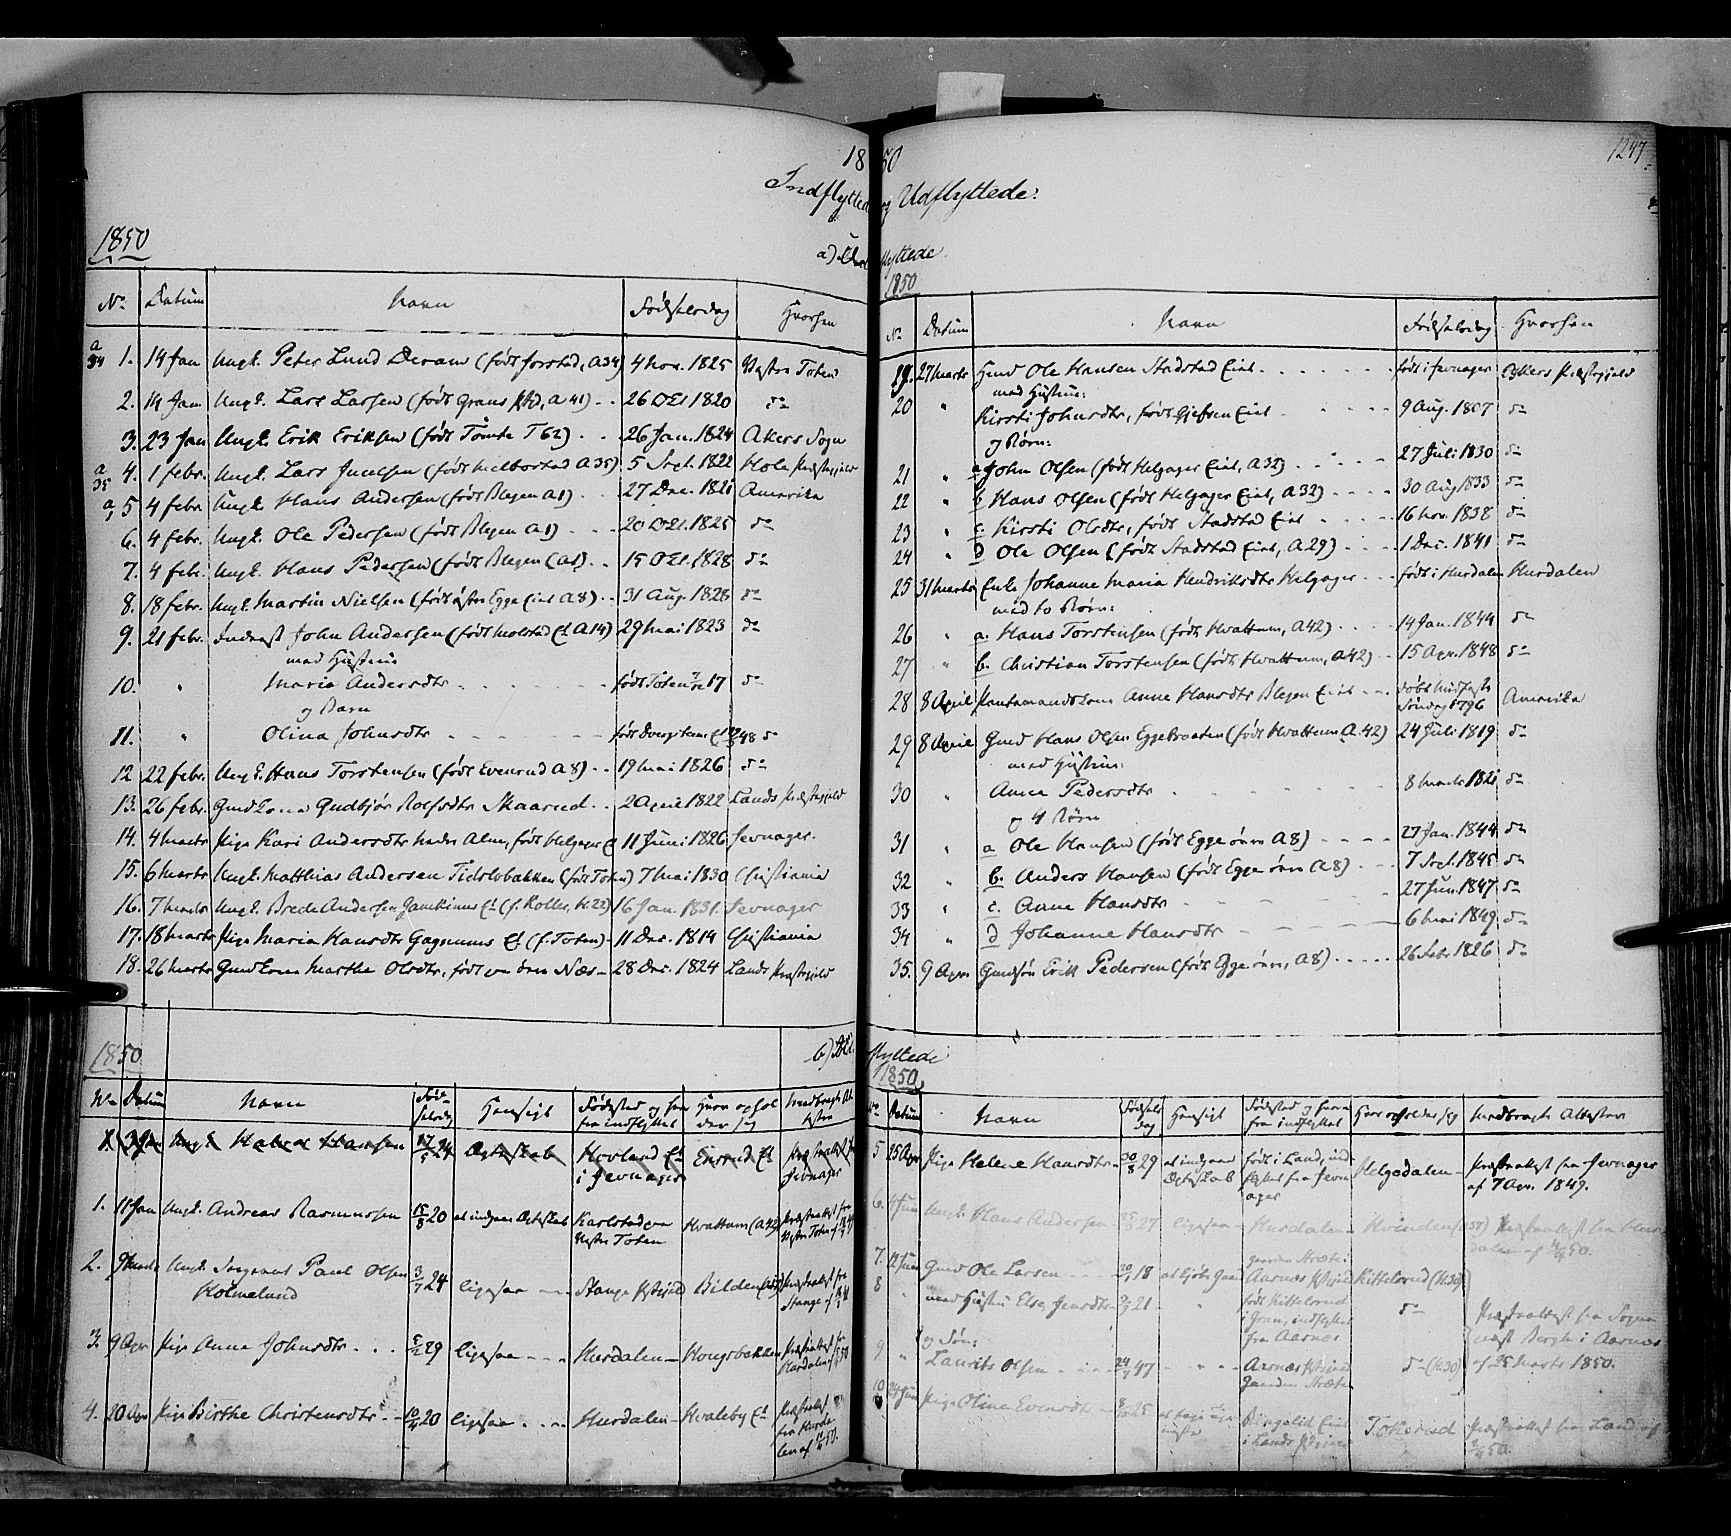 1850
1247
Indflyttede og Udflyttede:
1850
a) Udflyttede
No Datum Navn Fødselsdag Hvorhen
a 34 1. 14 Jan Ungk. Peter Lund (født A34) 4 Nov. 1825 Vestre Toten
2. 14 Jan Ungk. Lars Larsen (født Grans A41) 26 Oct 1820 do
3. 23 Jan Ungk. Erik Eriksen (født Tømte T62) 26 Jan. 1824 Akers Sogn
a 35 4. 1 febr. Ungk. Lars (født A35) 5 Sept. 1822 Hole Præstegjeld
a 1 5 4 febr. Ungk. Hans Andersen (født Blegen A1) 27 Dec. 1821 Amerika
6. 4 febr. Ungk. Ole Pedersen (født Blegen A1) 20 Oct. 1825 do
7. 4 febr. Ungk. Hans Pedersen (født Blegen A1) 15 Oct. 1828 do
8. 18 febr. Ungk. Martin Nielsen (født østre Egge Eiet A8) 31 Aug. 1828 do
9. 21 febr. Inderst John Andersen (født Molstad Et A14) 29 Mai 1823 do
med Hustrue
10. " Maria Andersdtr født Toten 17 do
og Barn
11. " Olina Johnsdtr født 48 do
12 22 febr. Ungk. Hans Torstensen (født Evenrud A8) 19 Mai 1826 do
13. 26 febr. Gmdkone Gudbjør Rolfsdtr Skaarud 2 April 1822 Lands Præstegjeld
14. 4 Marts Pige Kari Andersdtr nedre Alm, født Helgager E 11 Juni 1826 Jevnager.
15. 6 Marts Ungk. Matthias Andersen Tidslebakken (født Toten) 7 Mai 1830 Christiania
16. 7 Marts Ungk. Brede Andersen Et (f. Koller, K22) 16 Jan. 1831. Jevnager
17. 18 Marts Pige Maria Hansdtr Et (f. Toten) 11 Dec. 1814 Christiania
18. 26 Marts Gmdkone Marthe Olsdtr, født 28 Dec. 1824 Lands Præstegjeld
1850
No Datum Navn Fødselsdag Hvorhen
19. 27 Marts Gmd Ole Hansen Stadstad Eiet født i Jevnager Præstegjeld
med Hustrue:
20 " Kirsti Johnsdtr, født Eiet 9 Aug. 1807 do
og Børn:
21 " a John Olsen (født Helgager Eiet, A32) 27 Juli 1830 do
22 " b Hans Olsen (født Helgager Eiet, A32) 30 Aug 1833 do
23 " c. Kirsti Olsdtr, født Stadstad Eiet 16 Nov. 1838 do
24 " d Ole Olsen (født Stadstad Eiet, A29) 1 Dec. 1841 do
25 31 Marts Enke Johanne Maria Hendriksdtr Helgager født i Hurdalen Hurdalen
med to Børn:
26 " a. Hans Torstensen (født Hvattum, A42) 14 Jan. 1844 do
27 " b. Christian Torstensen (født Hvattum, A42) 15 Apr. 1848 do
28 8 April Pantemandskone Anne Hansdtr Blegen Eiet døbt Søndag 1796 Amerika
29 8 April Gmd Hans Olsen Eggebraaten (født Hvattum A.42) 24 Juli 1819 do
med Hustrue:
30 " Anne Pedersdtr 8 Marts 1821 do
og 4 Børn
31 " a Ole Hansen (født Egge øvre A8) 27 Jan. 1844 do
32 " b. Anders Hansen (født Egge øvre A8) 7 Sept. 1845 do
33 " c. Anne Hansdtr 27 Jun. 1847 do
34 " d Johanne Hansdtr 6 Mai 1849 do
35. 9 Apr. Gmdsøn Erik Pedersen (født Egge øvre, A8) 26 Febr 1826 do
1850
b) Indflyttede
No Datum Navn Fødselsdag Hensigt Fødested og hvorfra indflyttet Hvor opholder sig Medbragte Attester
1. 3 Jan Ungk. Hansen 24 Ægteskab Hovland Et i Jevnager Et Jevnager
1. 11 Jan Ungk. Andreas Rasmussen 15/8 20 at indgaae Ægteskab Karlstad Vestre Toten Hvattum (A42) Præsteattest fra Vestre Toten
2. 9 Marts Ungk. Sergeant Paul Olsen 3/7 24 ligesaa Stange Pgjeld Bilden Præsteattest fra Stange
Holmelund
3. 9 Apr Pige Anne Johnsdtr 29 ligesaa Hurdalen Kongsbakken Præsteattest fra Hurdalen
4. 20 Apr Pige Birthe Christensdtr 20 ligesaa Hurdalen Hvaleby Et Præsteattest fra Hurdalen af 50.
1850
No Datum Navn Fødselsdag Hensigt Fødested og hvorfra indflyttet Hvor opholder sig Medbragte Attester
5 25 Apr Pige Helene Hansdtr 30/8 29 at indgaae Ægteskab født i Land, indflyttet fra Jevnager Helgedalen Præsteattest fra Jevnager af 7 Apr. 1849.
6. Jun Ungk. Hans Andersen 27 ligesaa Hurdalen Hvinden Præsteattest fra Hurdalen af 50.
7. 12 Jun Gmd Ole Larsen 20 18 Aarnæs Pgjeld Kittelsrud (K30)
8 " med Hustru Else 21 " født Kittelsrud i Gran, indflyttet fra Aarnæs do Præsteattest fra Sogne
og Søn:
9 " Laurits Olsen 24 47 " Aarnæs Pgjeld do (K30) Bergh i Aarnæs af 25 Marts 1850.
10 24 Jun Pige Olina Evensdtr 25 Eiet i Lands Pgjeld Præsteattest fra Land af 50.